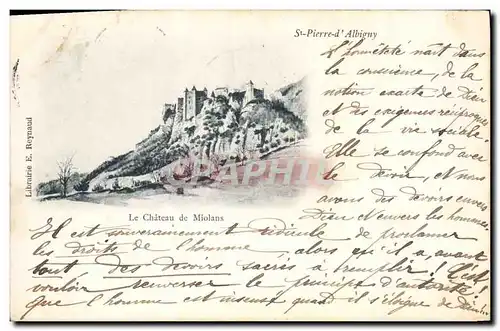 St-Pierre-d'Albigny
L'honnêteté naît dans
la conscience, de la
notion exacte de Dieu
et des exigences réciproques
de la vie sociale.
Elle se confond avec
le devoir, et nous
avons des devoirs envers
Dieu et envers les hommes.
Librairie E. Reynaud
CARTE PRECIEUSE
Le Château de Miolans
Il est souverainement ridicule de proclamer
les droits de l'homme, alors qu'il a avant
tout des devoirs sacrés à remplir! C'est
vouloir renverser le principe d'autorité
que l'homme est insensé quand il s'éloigne de Dieu.